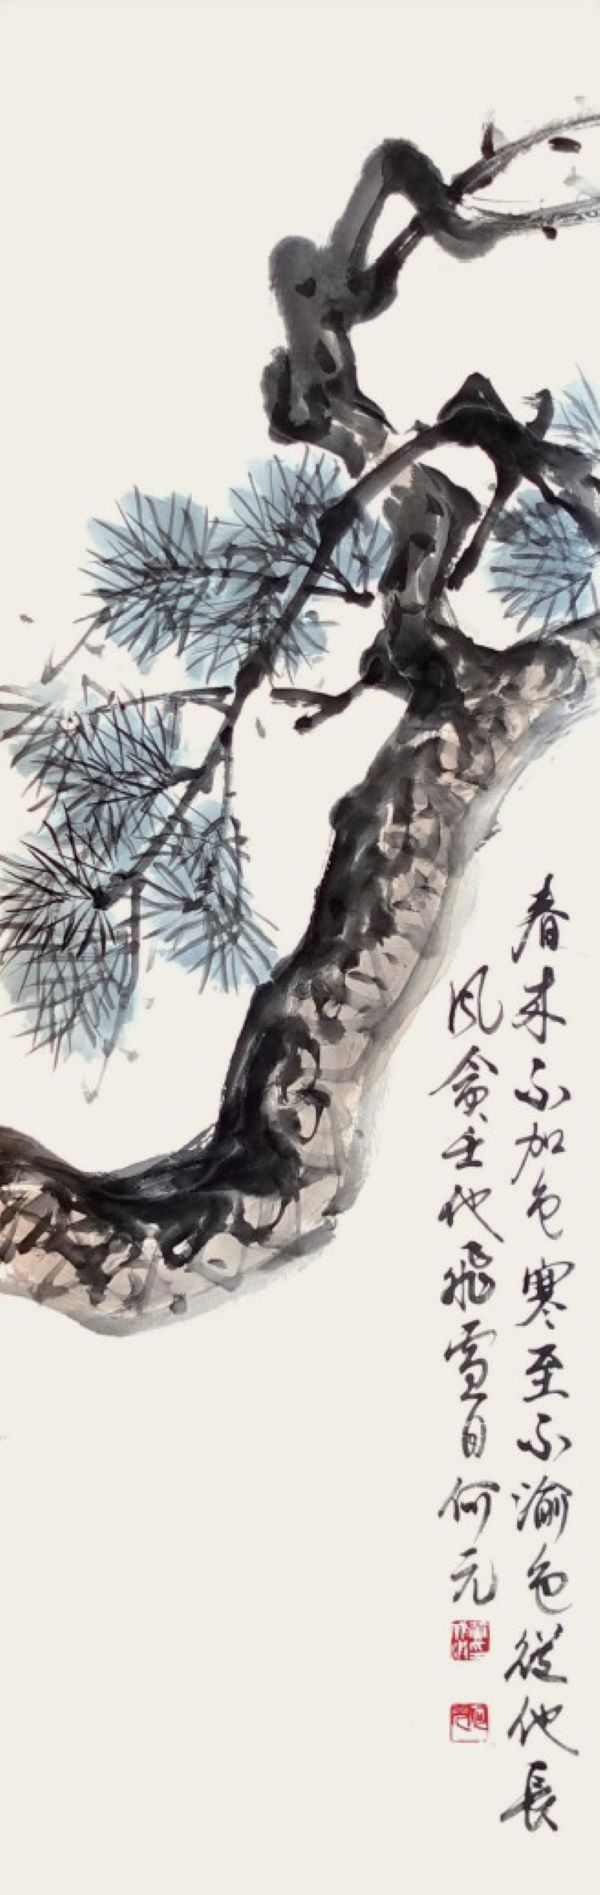 春来不加色寒至不渝色從他長
風貪壬他飛雪白何元